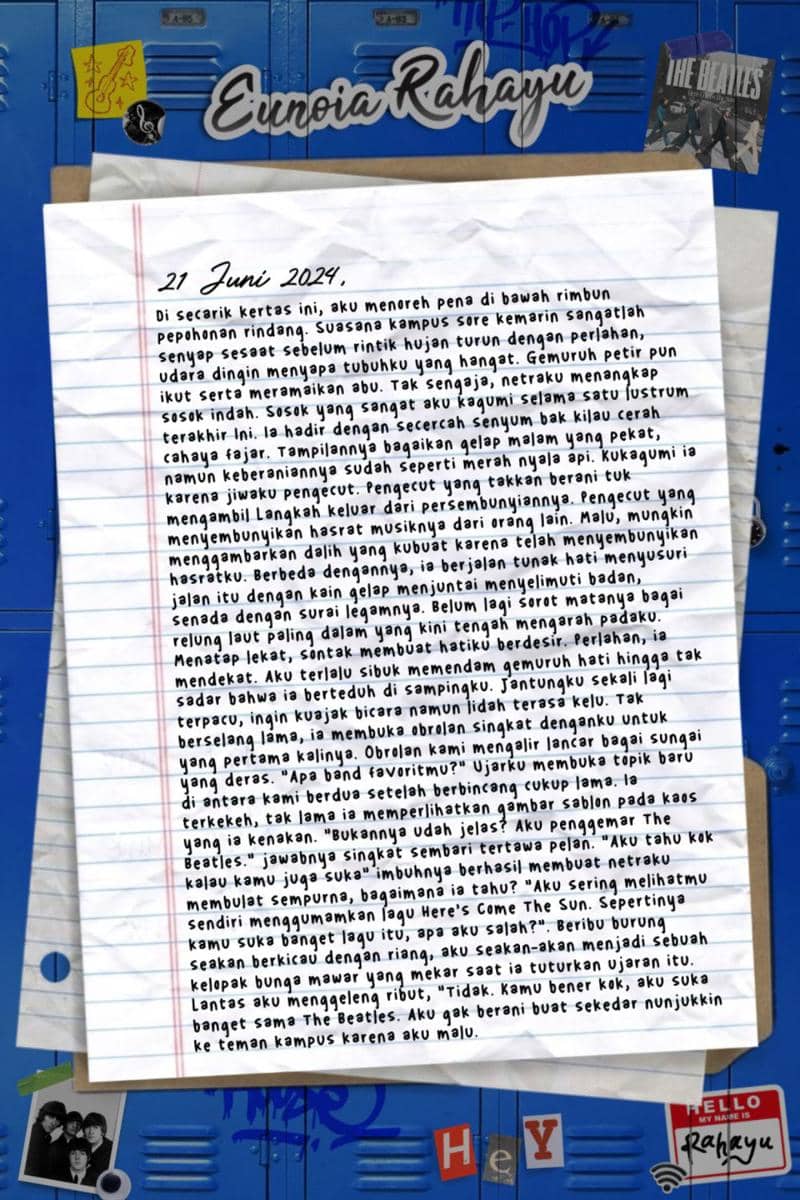 A-95
A-93
HIP-HOP
THE BEATLES
Eunoia Rahayu
21 Juni 2024,
Di secarik kertas ini, aku menoreh pena di bawah rimbun
pepohonan rindang. Suasana kampus sore kemarin sangatlah
senyap sesaat sebelum rintik hujan turun dengan perlahan,
udara dingin menyapa tubuhku yang hangat. Gemuruh petir pun
ikut serta meramaikan abu. Tak sengaja, netraku menangkap
sosok indah. Sosok yang sangat aku kagumi selama satu lustrum
terakhir Ini. Ia hadir dengan secercah senyum bak kilau cerah
cahaya fajar. Tampilannya bagaikan gelap malam yang pekat,
namun keberaniannya sudah seperti merah nyala api. Kukagumi ia
karena jiwaku pengecut. Pengecut yang takkan berani tuk
mengambil Langkah keluar dari persembunyiannya. Pengecut yang
menyembunyikan hasrat musiknya dari orang lain. Malu, mungkin
menggambarkan dalih yang kubuat karena telah menyembunyikan
hasratku. Berbeda dengannya, ia berjalan tunak hati menyusuri
jalan itu dengan kain gelap menjuntai menyelimuti badan,
senada dengan surai legamnya. Belum lagi sorot matanya bagai
relung laut paling dalam yang kini tengah mengarah padaku.
Menatap lekat, sontak membuat hatiku berdesir. Perlahan, ia
mendekat. Aku terlalu sibuk memendam gemuruh hati hingga tak
sadar bahwa ia berteduh di sampingku. Jantungku sekali lagi
terpacu, ingin kuajak bicara namun lidah terasa kelu. Tak
berselang lama, ia membuka obrolan singkat denganku untuk
yang pertama kalinya. Obrolan kami mengalir lancar bagai sungai
yang deras. "Apa band favoritmu?" Ujarku membuka topik baru
di antara kami berdua setelah berbincang cukup lama. Ia
terkekeh, tak lama ia memperlihatkan gambar sablon pada kaos
yang ia kenakan. "Bukannya udah jelas? Aku penggemar The
Beatles." jawabnya singkat sembari tertawa pelan. "Aku tahu kok
kalau kamu juga suka" imbuhnya berhasil membuat netraku
membulat sempurna, bagaimana ia tahu? "Aku sering melihatmu
sendiri menggumamkan lagu Here's Come The Sun. Sepertinya
kamu suka banget lagu itu, apa aku salah?". Beribu burung
seakan berkicau dengan riang, aku seakan-akan menjadi sebuah
kelopak bunga mawar yang mekar saat ia tuturkan ujaran itu.
Lantas aku menggeleng ribut, "Tidak. Kamu bener kok, aku suka
banget sama The Beatles. Aku gak berani buat sekedar nunjukkin
ke teman kampus karena aku malu.
HeY
HELLO
MY NAME IS
Rahayu